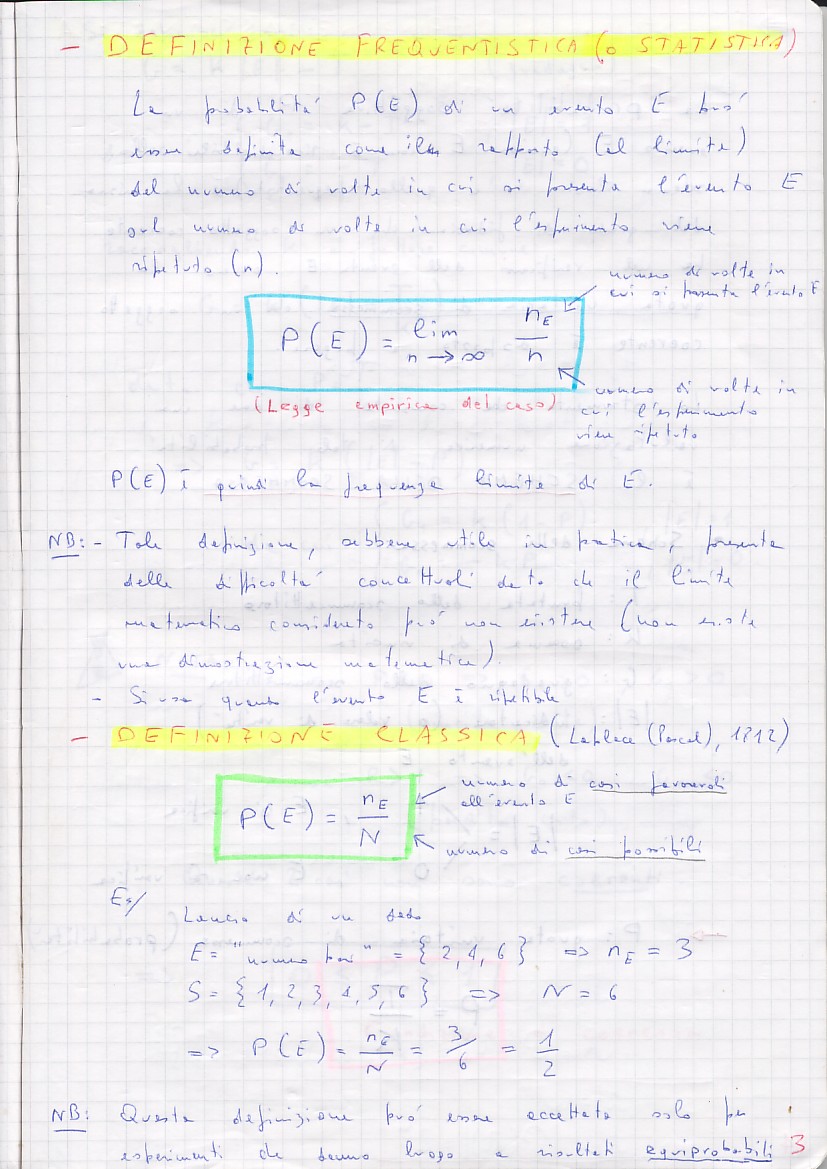 - DEFINIZIONE FREQUENTISTICA (o STATISTICA)
La probabilità P(E) di un evento E può
essere definita come il rapporto (al limite)
del numero di volte in cui si presenta l'evento E
sul numero di volte in cui l'esperimento viene
ripetuto (n).
numero di volte in
cui si presenta l'evento E
P(E) = lim n→∞ nE/n
(Legge empirica del caso)
numero di volte in
cui l'esperimento
viene ripetuto
P(E) è quindi la frequenza limite di E.
NB: - Tale definizione, sebbene utile in pratica, presenta
delle difficoltà concettuali dato che il limite
matematico considerato può non esistere (non esiste
una dimostrazione matematica).
- Si usa quando l'evento E è ripetibile
- DEFINIZIONE CLASSICA (Laplace (Pascal), 1812)
P(E) = nE/N
numero di casi favorevoli
all'evento E
numero di casi possibili
Es/
Lancio di un dado
E = "numero pari" = {2, 4, 6} => nE = 3
S = {1, 2, 3, 4, 5, 6} => N = 6
=> P(E) = nE/N = 3/6 = 1/2
NB: Questa definizione può essere accettata solo per
esperimenti che danno luogo a risultati equiprobabili
3